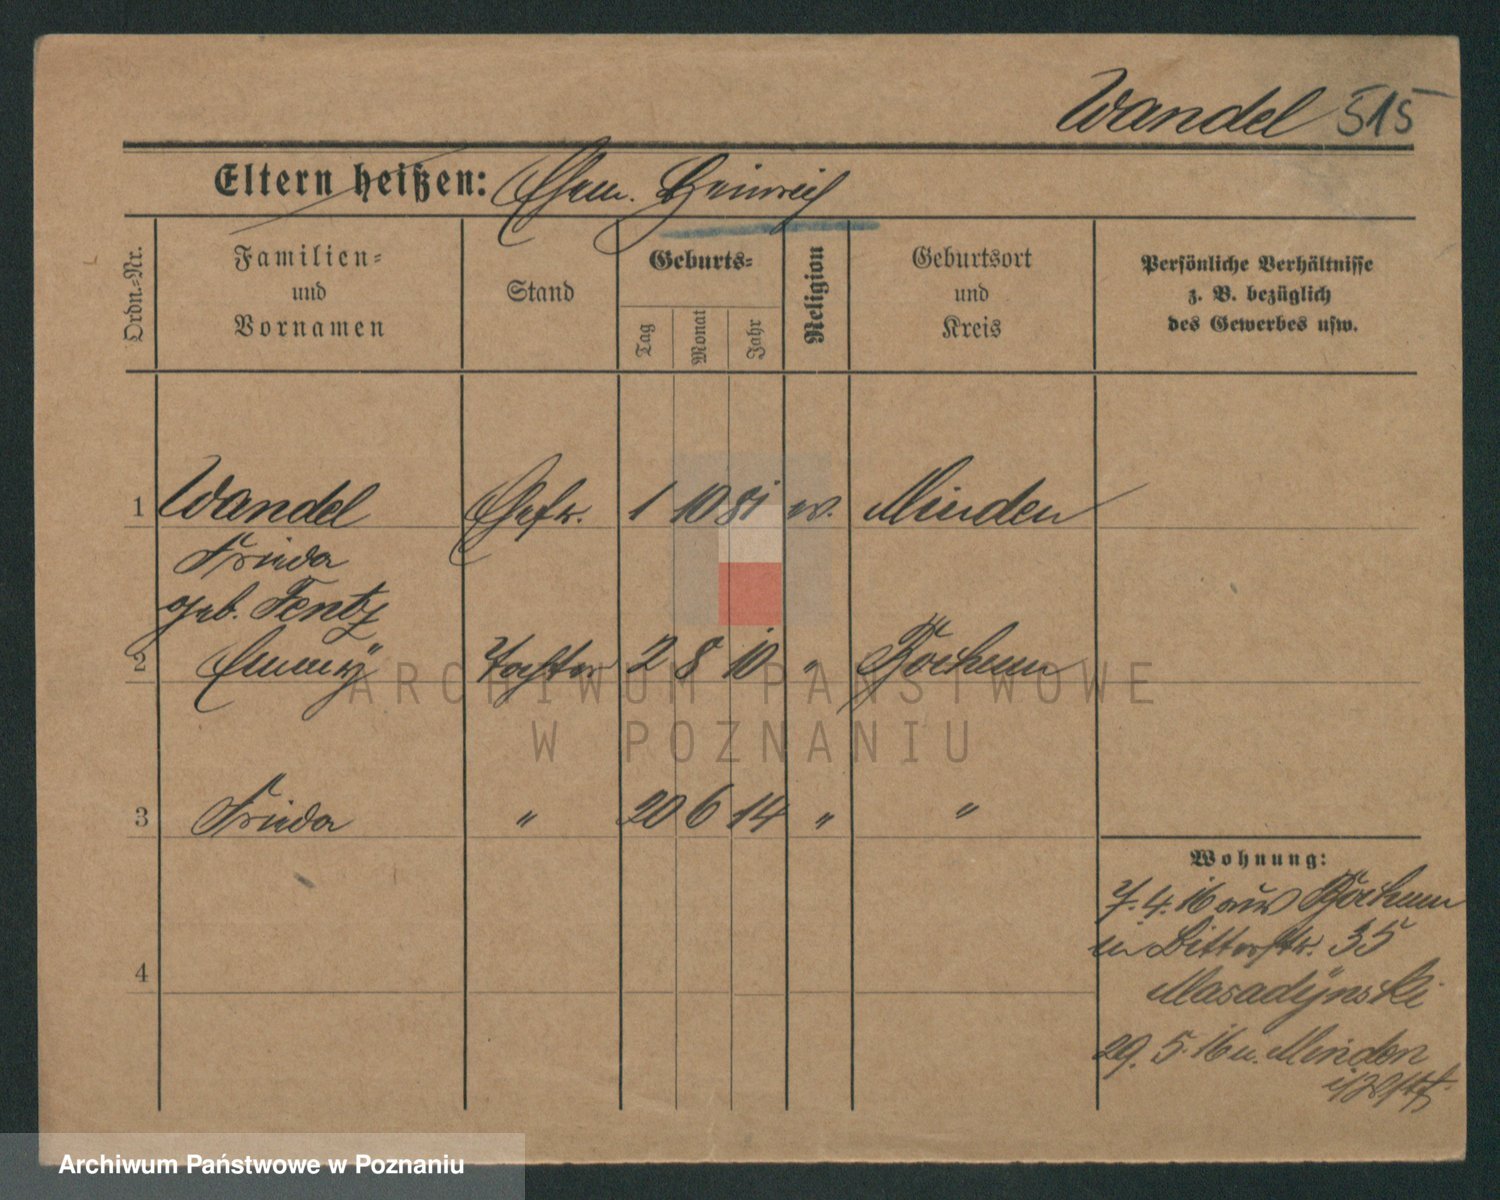 Wandel 515
Eltern heißen: Ehem. Heinrich
Ordn.-Nr.
Familien-
und
Vornamen
Stand
Geburts-
Tag
Monat
Jahr
Religion
Geburtsort
und
Kreis
Persönliche Verhältnisse
z. B. bezüglich
des Gewerbes usw.
1 Wandel Ehefr. 1 10 81 ev. Minden
Frieda
geb. Fentz
2 Emmy Tochter 2 8 10 " Bochum
3 Frieda " 20 6 14 " "
4
Wohnung:
7. 4. 16 aus Bochum
in Bitterstr. 35
Masadynski
29. 5. 16 n. Minden
ARCHIWUM PAŃSTWOWE
W POZNANIU
Archiwum Państwowe w Poznaniu